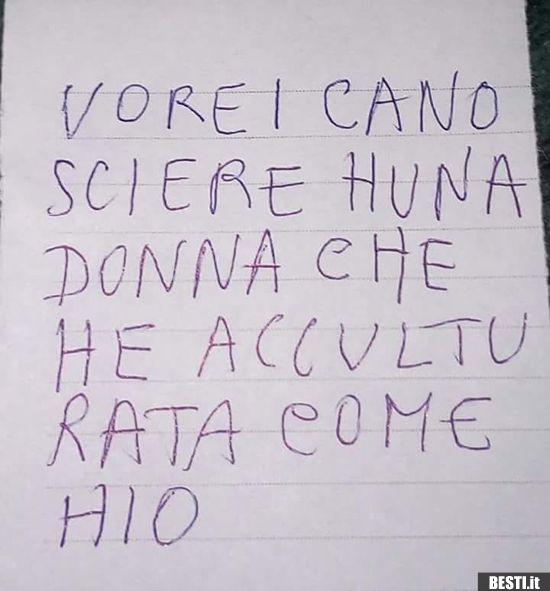 VOREI CANO
SCIERE HUNA
DONNA CHE
HE ACCULTU
RATA COME
HIO
BESTI.it